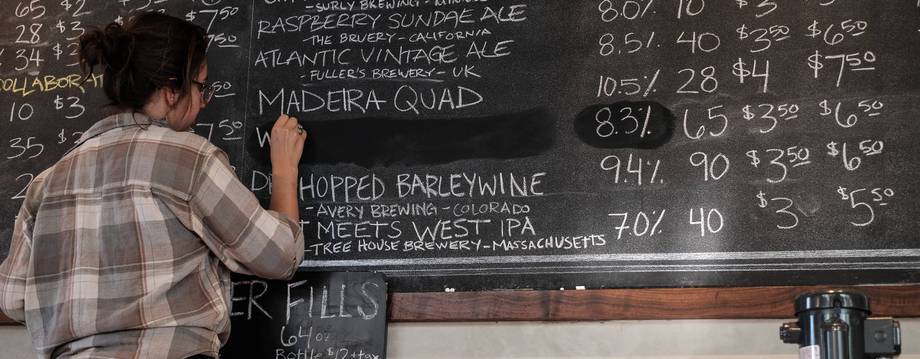 65 $2
28 $3 $7.50
34 $3 7.50
COLLABORAT
10 $3
35 $3 7.50
- SURLY BREWING -
RASPBERRY SUNDAE ALE 8.0% 10 $3
- THE BRUERY - CALIFORNIA
ATLANTIC VINTAGE ALE 8.5% 40 $3.50 $6.50
- FULLER'S BREWERY - UK
MADEIRA QUAD 10.5% 28 $4 $7.50
W 8.3% 65 $3.50 $6.50
HOPPED BARLEYWINE 9.4% 90 $3.50 $6.50
- AVERY BREWING - COLORADO
T MEETS WEST IPA 7.0% 40 $3 $5.50
- TREE HOUSE BREWERY - MASSACHUSETTS
ER FILLS
64 oz
Bottle $2 + tax